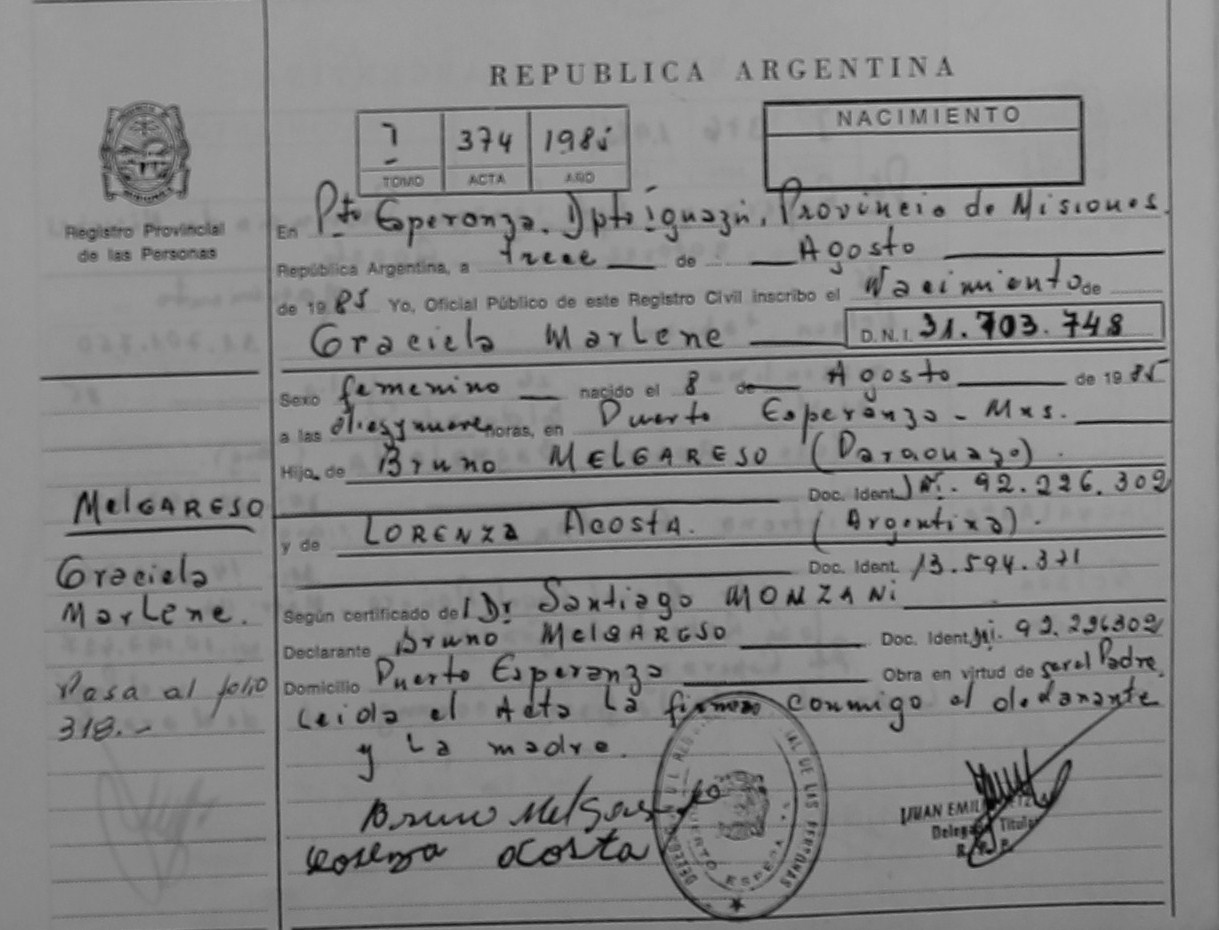 REPUBLICA ARGENTINA
I 374 1985
TOMO ACTA AÑO
NACIMIENTO
Registro Provincial
de las Personas
En Pto Esperanza. Dpto iguazú. Provincia de Misiones.
República Argentina, a trece de Agosto
de 1985 Yo, Oficial Público de este Registro Civil inscribo el Nacimiento de
Graciela Marlene D.N.I. 31.703.748
Sexo femenino nacido el 8 de Agosto de 1985
a las diesynueve horas, en Puerto Esperanza - Mns.
Hija de Bruno MELGARESO (Paraguayo).
Doc. Ident. Ni. 92.226.302
y de LORENZA Acosta. (Argentina).
Doc. Ident. 13.594.371
Según certificado del Dr Santiago MONZANi
Declarante Bruno MelGARESO Doc. Ident. Ni. 92.226302
Domicilio Puerto Esperanza Obra en virtud de ser el Padre
Leida el Acta La firman conmigo el declarante
y La madre.
MelGARESO
Graciela
Marlene.
Pasa al folio
318.-
Bruno Melgareso
Lorenza Acosta
PUERTO ESPERANZA
DE LAS PERSONAS
JUAN EMIL
Titular